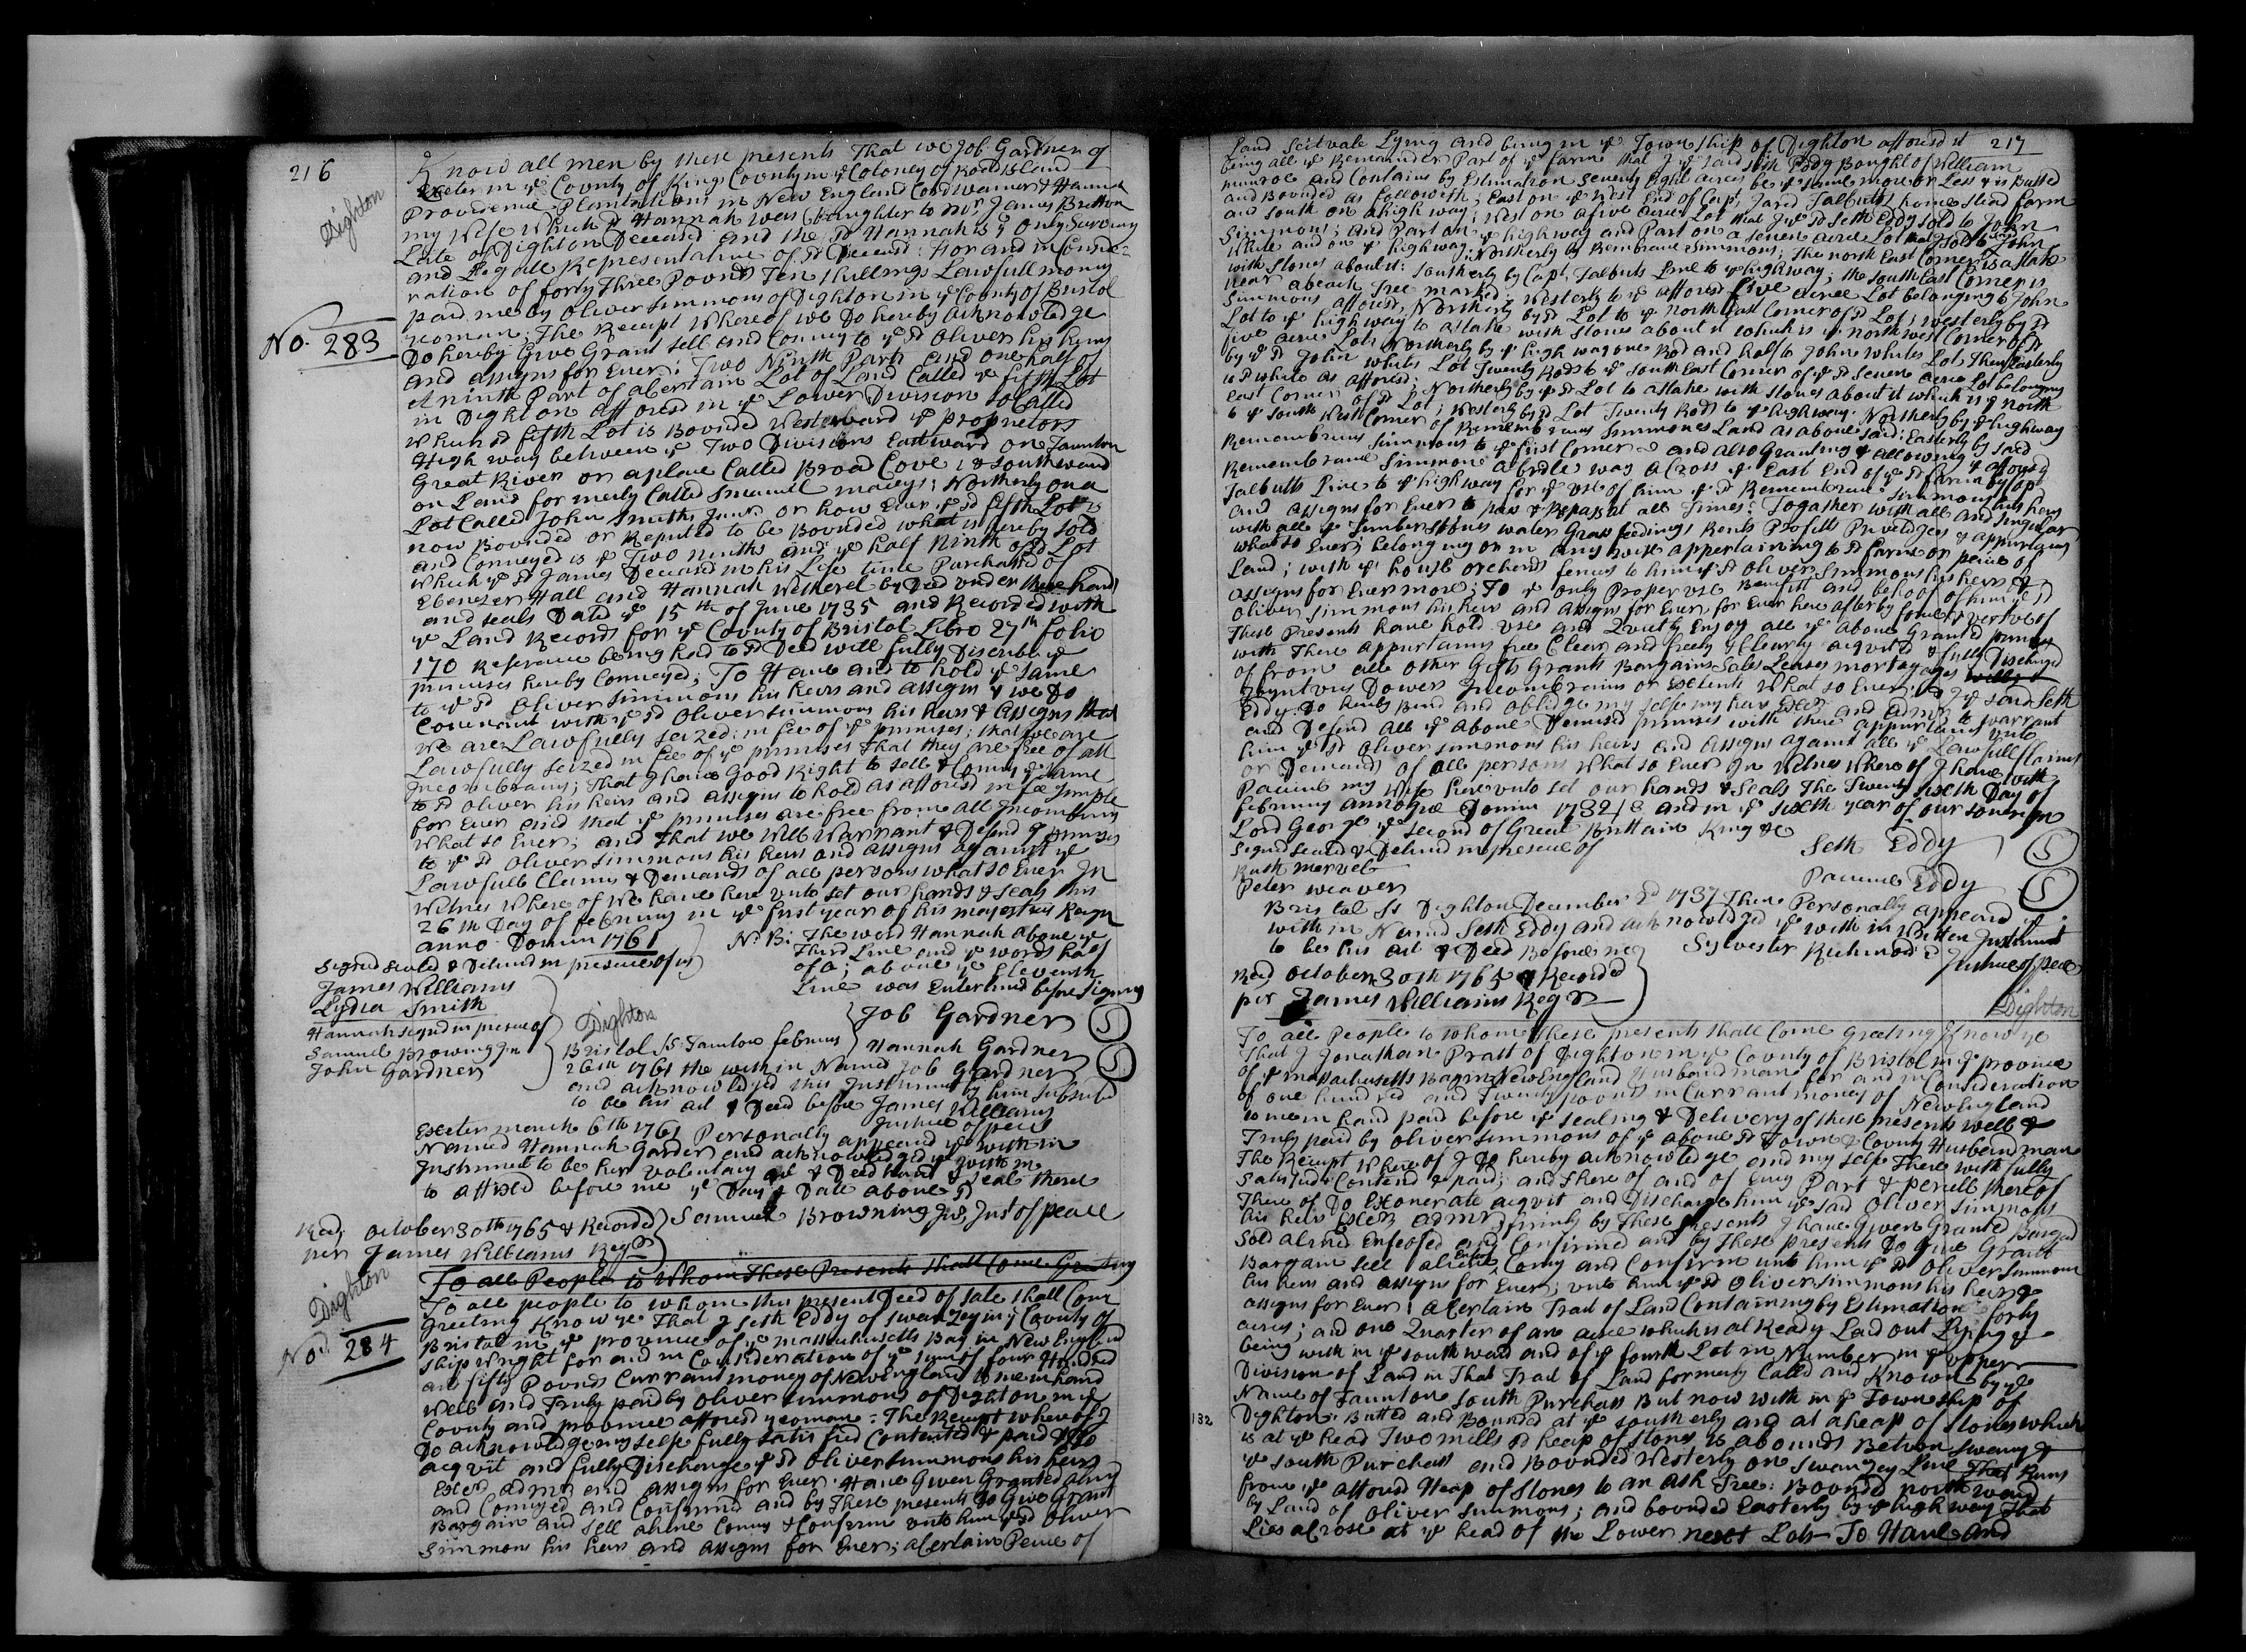 216
Dighton
Know all men by these presents That we Job Gardner of
Exeter in ye County of Kings County in ye Coloney of Rod island
Providence Plantations in New England Cordwainer & Hannah
my Wife Which sd Hannah was Daughter to Mr James Britton
Late of Dighton Deceased and the sd Hannah is ye only Surviving
and Legall Representative of sd Deceasd: For and in Conside=
ration of forty Three Pounds Ten shillings Lawfull money
paid me by Oliver Simmons of Dighton in ye County of Bristol
yeoman: The Receipt Whereof we Do hereby acknowledge
No. 283
Do hereby Give Grant sell and Convey to ye sd Oliver his heirs
and assigns for Ever: Two Ninth Parts and one half of
A ninth Part of a Certain Lot of Land Called ye fifth Lot
in Dighton afforesd in ye Lower Division so Called
Which sd fifth Lot is Bounded Westerward ye proprietors
High way between ye Two Divisions Eastward on Taunton
Great River or a place Called Broad Cove; & southward
on Land formerly Called Smauel maceys; Northerly on a
Lot Called John Smiths Junr or how Ever ye sd fifth Lot is
now Bounded or Reputed to be Bounded what is hereby sold
and Conveyed is ye Two ninths and ye half Ninth of sd Lot
which ye sd James Deceasd in his Life time Purchasd of
Ebenezer Hall and Hannah Wetherel by Deed under there hands
and seals Dated ye 15th of June 1735 and Recorded with
ye Land Records for ye County of Bristol Libro 27th folio
170 Reference being had to sd Deed will fully Discribe ye
premises hereby Conveyed; To Have and to hold ye same
to ye sd Oliver Simmons his heirs and assigns & we Do
Covenant with ye sd Oliver Simmons his heirs & Assigns that
We are Lawfully seized in fee of ye premises; that we are
Lawfully seized in fee of ye premises That they are free of all
Incombrances; That I have Good Right to sell & Convey ye same
to sd Oliver his heirs and assigns to hold as afforesd in fee simple
for Ever and that ye premises are free from all Incombrances
What so Ever; and that we will Warrant & Defend ye premises
to ye sd Oliver Simmons his heirs and assigns against ye
Lawfull Claims & Demands of all persons what so Ever In
Witness Where of We have here unto set our hands & seals this
26th Day of february in ye first year of his majesties Reign
anno Domini 1761
Signed Sealed & Delivrd in presence of us
James Williams
Lydia Smith
Hannah signd in presence of
Samuel Browning Jnr
John Gardner
N: B: The word Hannah above ye
Third Line and ye words half
of a; above ye Eleventh
Line was Enterlined before signing
Job Gardner (S)
Hannah Gardner (S)
Dighton
Bristol ss Taunton february
26th 1761 the with in Named Job Gardner
and acknowledged this Instrument by him subscribd
to be his act & Deed before James Williams
Justice of peace
Exeter march 6th 1761 Personally appeard ye with in
Named Hannah Garder and acknowledged ye with in
Instrument to be her voluntary act & Deed hand & seal there
to affixed before me ye Day & Date above sd
Samuel Browning Jnr, Just of peace
Recd; October 30th 1765 & Recorded
per James Williams Regr
To all People to Whom These Presents shall Come Greeting
Dighton
No. 284
To all people to whome this present Deed of sale shall Come
Greeting Know ye That I Seth Eddy of Swanzey in ye County of
Bristol in ye province of ye massachusetts Bay in New England
Ship Wright for and in Consideration of ye sum of four Hundred
an fifty Pounds Currant money of New England to me in hand
Well and Truly paid by Oliver Simmons of Dighton in ye
County and province afforesd yeoman: The Receipt where of I
Do acknowledge my selfe fully satisfied Contented & paid & Do
acqvit and fully Discharge ye sd Oliver Simmons his heirs
Execd admrs and assigns for Ever: Have Given Granted alind
and Conveyed and Confirmd and by These presents Do Give Grant
Bargain and sell aliene Convey & Confirm unto him ye sd Oliver
Simmons his heirs and assigns for Ever; a Certain Peice of
217
Land Scitvate Lying and being in ye Township of Dighton afforesd it
being all ye Remainder Part of ye farm that I ye said Seth Eddy Bought of William
munroe and Contains by Estimation Seventy Eight acres be ye same more or Less & is Butted
and Bounded as followeth; East on ye West End of Capt, Jared Talbutts home stead farm
and south on a high way; west on a five acree Lot that I ye sd Seth Eddy sold to John
Simmons; and Part on ye highway and Part on a seven acree Lot that I sold to John
White and on ye highway; Northerly by Remembrance Simmons; The north East Corner is a stake
with stones about it: southerly by Capt, Talbuts Line to ye highway; the south East Corner is
near a beach Tree marked; westerly to ye afforesd five acree Lot belonging to John
Simmons afforesd, Northerly by sd Lot to ye north East Corner of sd Lot; westerly by sd
Lot to ye high way to a stake with stones about it which is ye north west Corner of sd
five acre Lot; Northerly by ye high way one Rod and half to John whites Lot, Then Easterly
by ye sd John whits Lot Twenty Rods to ye south East Corner of ye sd seven acre Lot belonging
to sd white as afforesd; Northerly by ye sd Lot to a stake with stones about it which is ye north
east Corner of sd Lot; westerly by sd Lot Twenty Rods to ye highway: Northerly by ye highway
to ye south West Corner of Remembrans Simmones Land as above said; Easterly by said
Remembrans Simmons to ye first Corner and also Granting & allowing &
Remembrance Simmons a bridle way a Cross ye East End of ye sd farm by Capt
Talbutts Line to ye highway for ye use of him ye sd Remembrance Simmons his heirs
and assigns for Ever to pass & Repass at all Times: Togather with all and singular
with all ye Timber stones water Grass feedings Rents Profitts Priviledges & appurtanis
what so Ever; belonging or in any wise appertaining to sd farm or peice of
Land; with ye house orchards fences to him ye sd Oliver Simmons his heirs &
assigns for Evermore; To ye only Proper use Benifitt and behoof of him ye sd
Oliver Simmons his heirs and assigns for Ever, for Ever here after by force & vertue of
These Presents have hold use and Quietly Enjoy all ye above Granted premises
with There appurtanis free Clear and freely & Clearly acquitd & fully Discharged
of from all other Gifts Grants Bargains Sales Leases mortgages wills
Joyntures Dowers Incombrances or Extents What so Ever; and I ye said Seth
Eddy Do hereby Bind and obliedge my selfe my heirs Execrs and admrs to warrant
and Defend all ye above Demised premises with there appurtanis unto
him ye sd Oliver Simmons his heirs and assigns against all ye Lawfull Claims
or Demands of all persons What so Ever In Witness Where of I have with
Pacience my Wife here unto set our hands & Seals The Twenty sixth Day of
february annoque Domini 1732/3 and in ye sixth year of our soverign
Lord George ye second of Great Brittain King &c
Signd seald & Delivrd in presence of
Ruth mervel
Peter weaver
Seth Eddy (S)
Pacience Eddy (S)
Bristol ss Dighton December 2d 1737 Then Personally appeard ye
with in Named Seth Eddy and acknowledged ye with in written Instrument
to be his act & Deed Before me Sylvester Richmond Justice of peace
Recd October 30th 1765 & Recorded
per James Williams Regr
Dighton
To all People to whome These presents shall Come Greeting Know ye
That I Jonathan Pratt of Dighton in ye County of Bristol in ye province
of ye massachusetts Bay in New England Husbandman for and in Consideration
of one hundred and Twenty pounds in Currant money of New England
to me in hand paid before ye sealing & Delivery of these presents well &
Truly paid by Oliver Simmons of ye above sd Town & County Husbandman
The Receipt Where of I Do hereby acknowledge and my selfe There with fully
Satisfied Contend & paid; and there of and of Every Part & percell thereof
There of Do Exonerate acqvit and Discharge him ye said Oliver Simmons
his heirs Execrs admrs firmly by These Presents I have Given Granted Bargad
Sold aliend Enfeofed and Confirmed and by these presents Do Give Grant
Bargain sell aliene Enfeof Convey and Confirm unto him ye sd Oliver Simmons
his heirs and assigns for Ever; unto him ye sd Oliver Simmons his heirs &
assigns for Ever: a Certain Tract of Land Containing by Estimation forty
acres; and one Quarter of an acre which is al Ready Laid out Lying &
being with in ye south ward and of ye fourth Lot in Number in ye upper
Division of Land in That Tract of Land formerly Called and Known by ye
Name of Taunton South Purchass But now with in ye Township of
132
Dighton: Butted and Bounded at ye southerly end at a heap of stones which
is at ye head Two mills sd heap of stones is a bounds Betwen Swanzey &
ye south Purchass and Bounded Westerly on Swanzey Line That Runs
from ye afforesd Heap of stones to an ash Tree: Bounded north ward
by Land of Oliver Simmons; and bounded Easterly by ye high way That
Lies a Cross at ye head of the Lower Lots To Have and